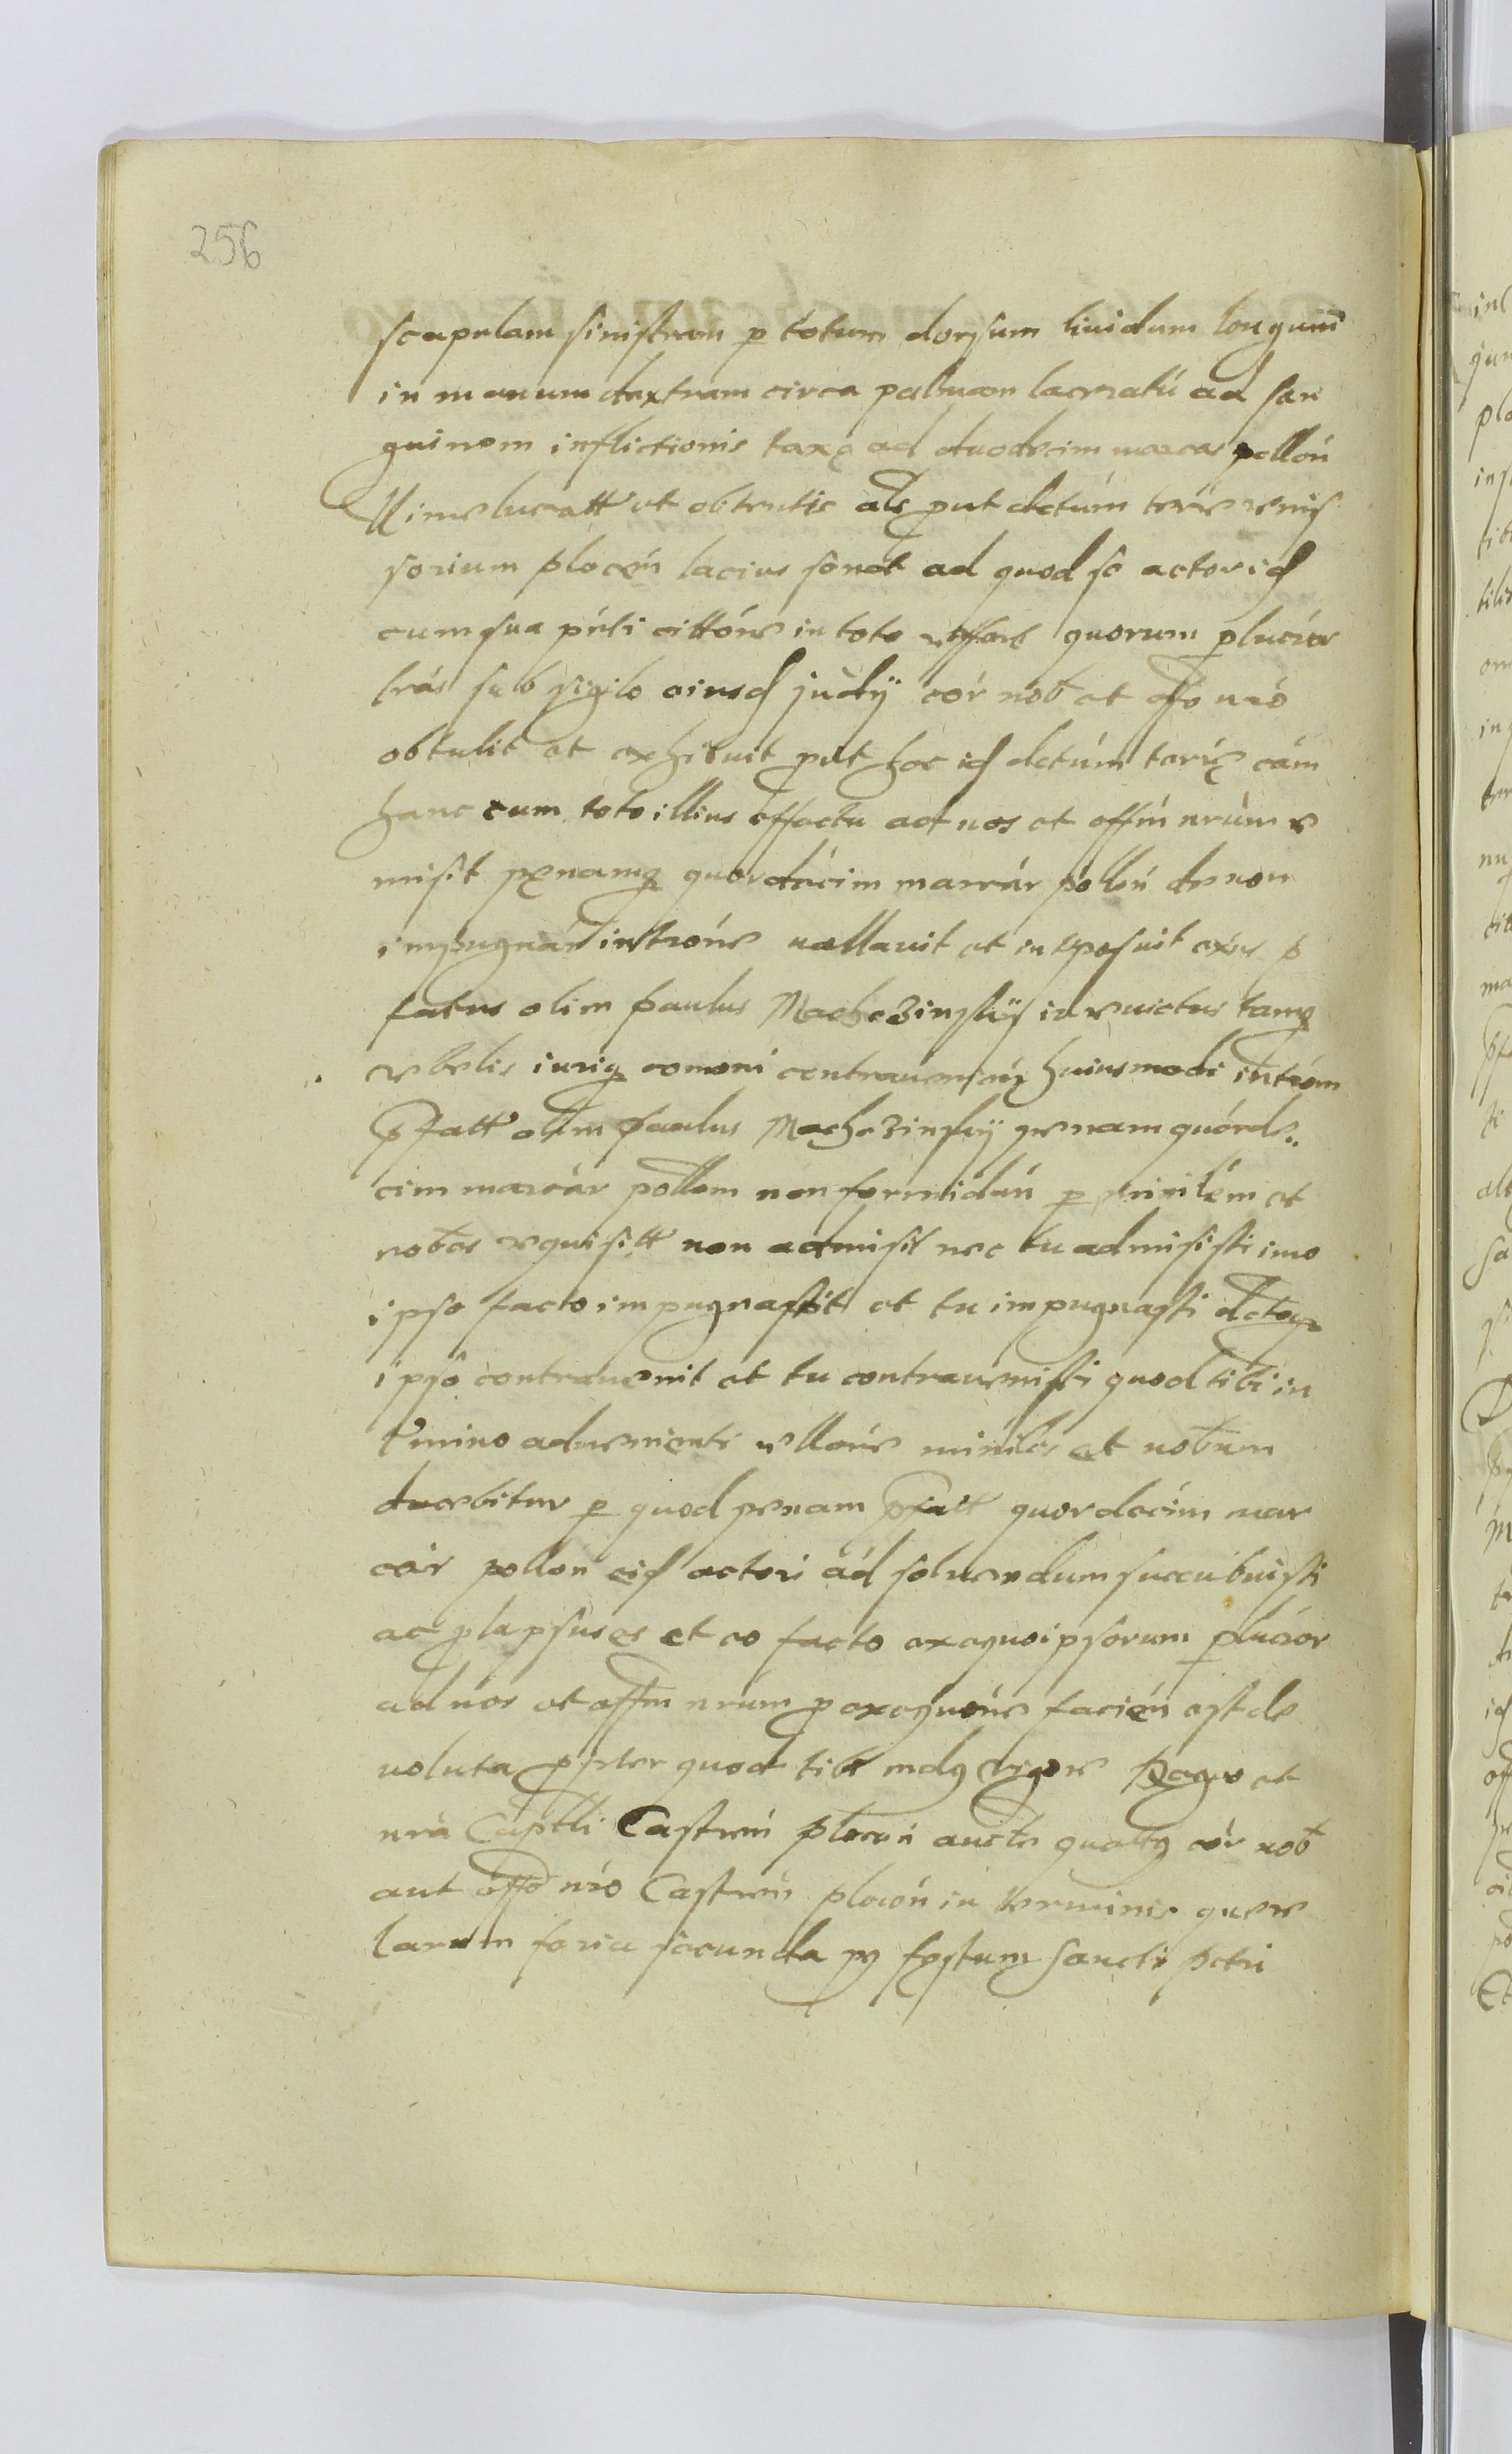 256
scapulam sinistram p totum dorsum liuidum longum
in manum dextram circa palmam laceratū ad san
guinem inflictionis taxę ad duodecim marcas pollón
iure lucratt et obtentis als put dctúm trre remis
sorium plocen lacius sonat ad quod se actor id
cum sua pńti cittóne in toto reffert quorum plucior
lrás sub sigilo eiusd judÿ cór nob et offo nro
obtulit et exhibuit put hoc id dctúm terrę cám
hanc cum toto illius effectu ad nos et offm nrúm re
misit pęnamq quordécim marcár pollón de non
impugnán intróne uallauit et interposuit p
fatus olim Paulus Machczinskÿ iureuictus tamq
rebelis juriq comoni contraueniens huiusmodi intróm
pfatt olim Paulus Machczinskÿ penam quórde
cim marcár pollon non formidán p minilém et
nobes requisitt non admisit nec tu admisisti imo
ipso facto impugnauit et tu impugnasti dctoq
ipso contrauenit et tu contrauenisti quod tibi in
termino aduenienti rellóne minilis et nobrum
docebitur p quod penam pfatt quordecim mar
cár pollon eid actori ad soluendum succubuisti
ac plapsus es et eo facto exequoipsorum plucior
ad nos et offm nrúm p exequóne facien est de
uoluta ppter quod tibi mdq rigore et
nrá Captli Castren plocen aucte quatq cór nob
aut offo nro Castren plocen in terminis quere
larum feria secunda pq festum sancti Petri